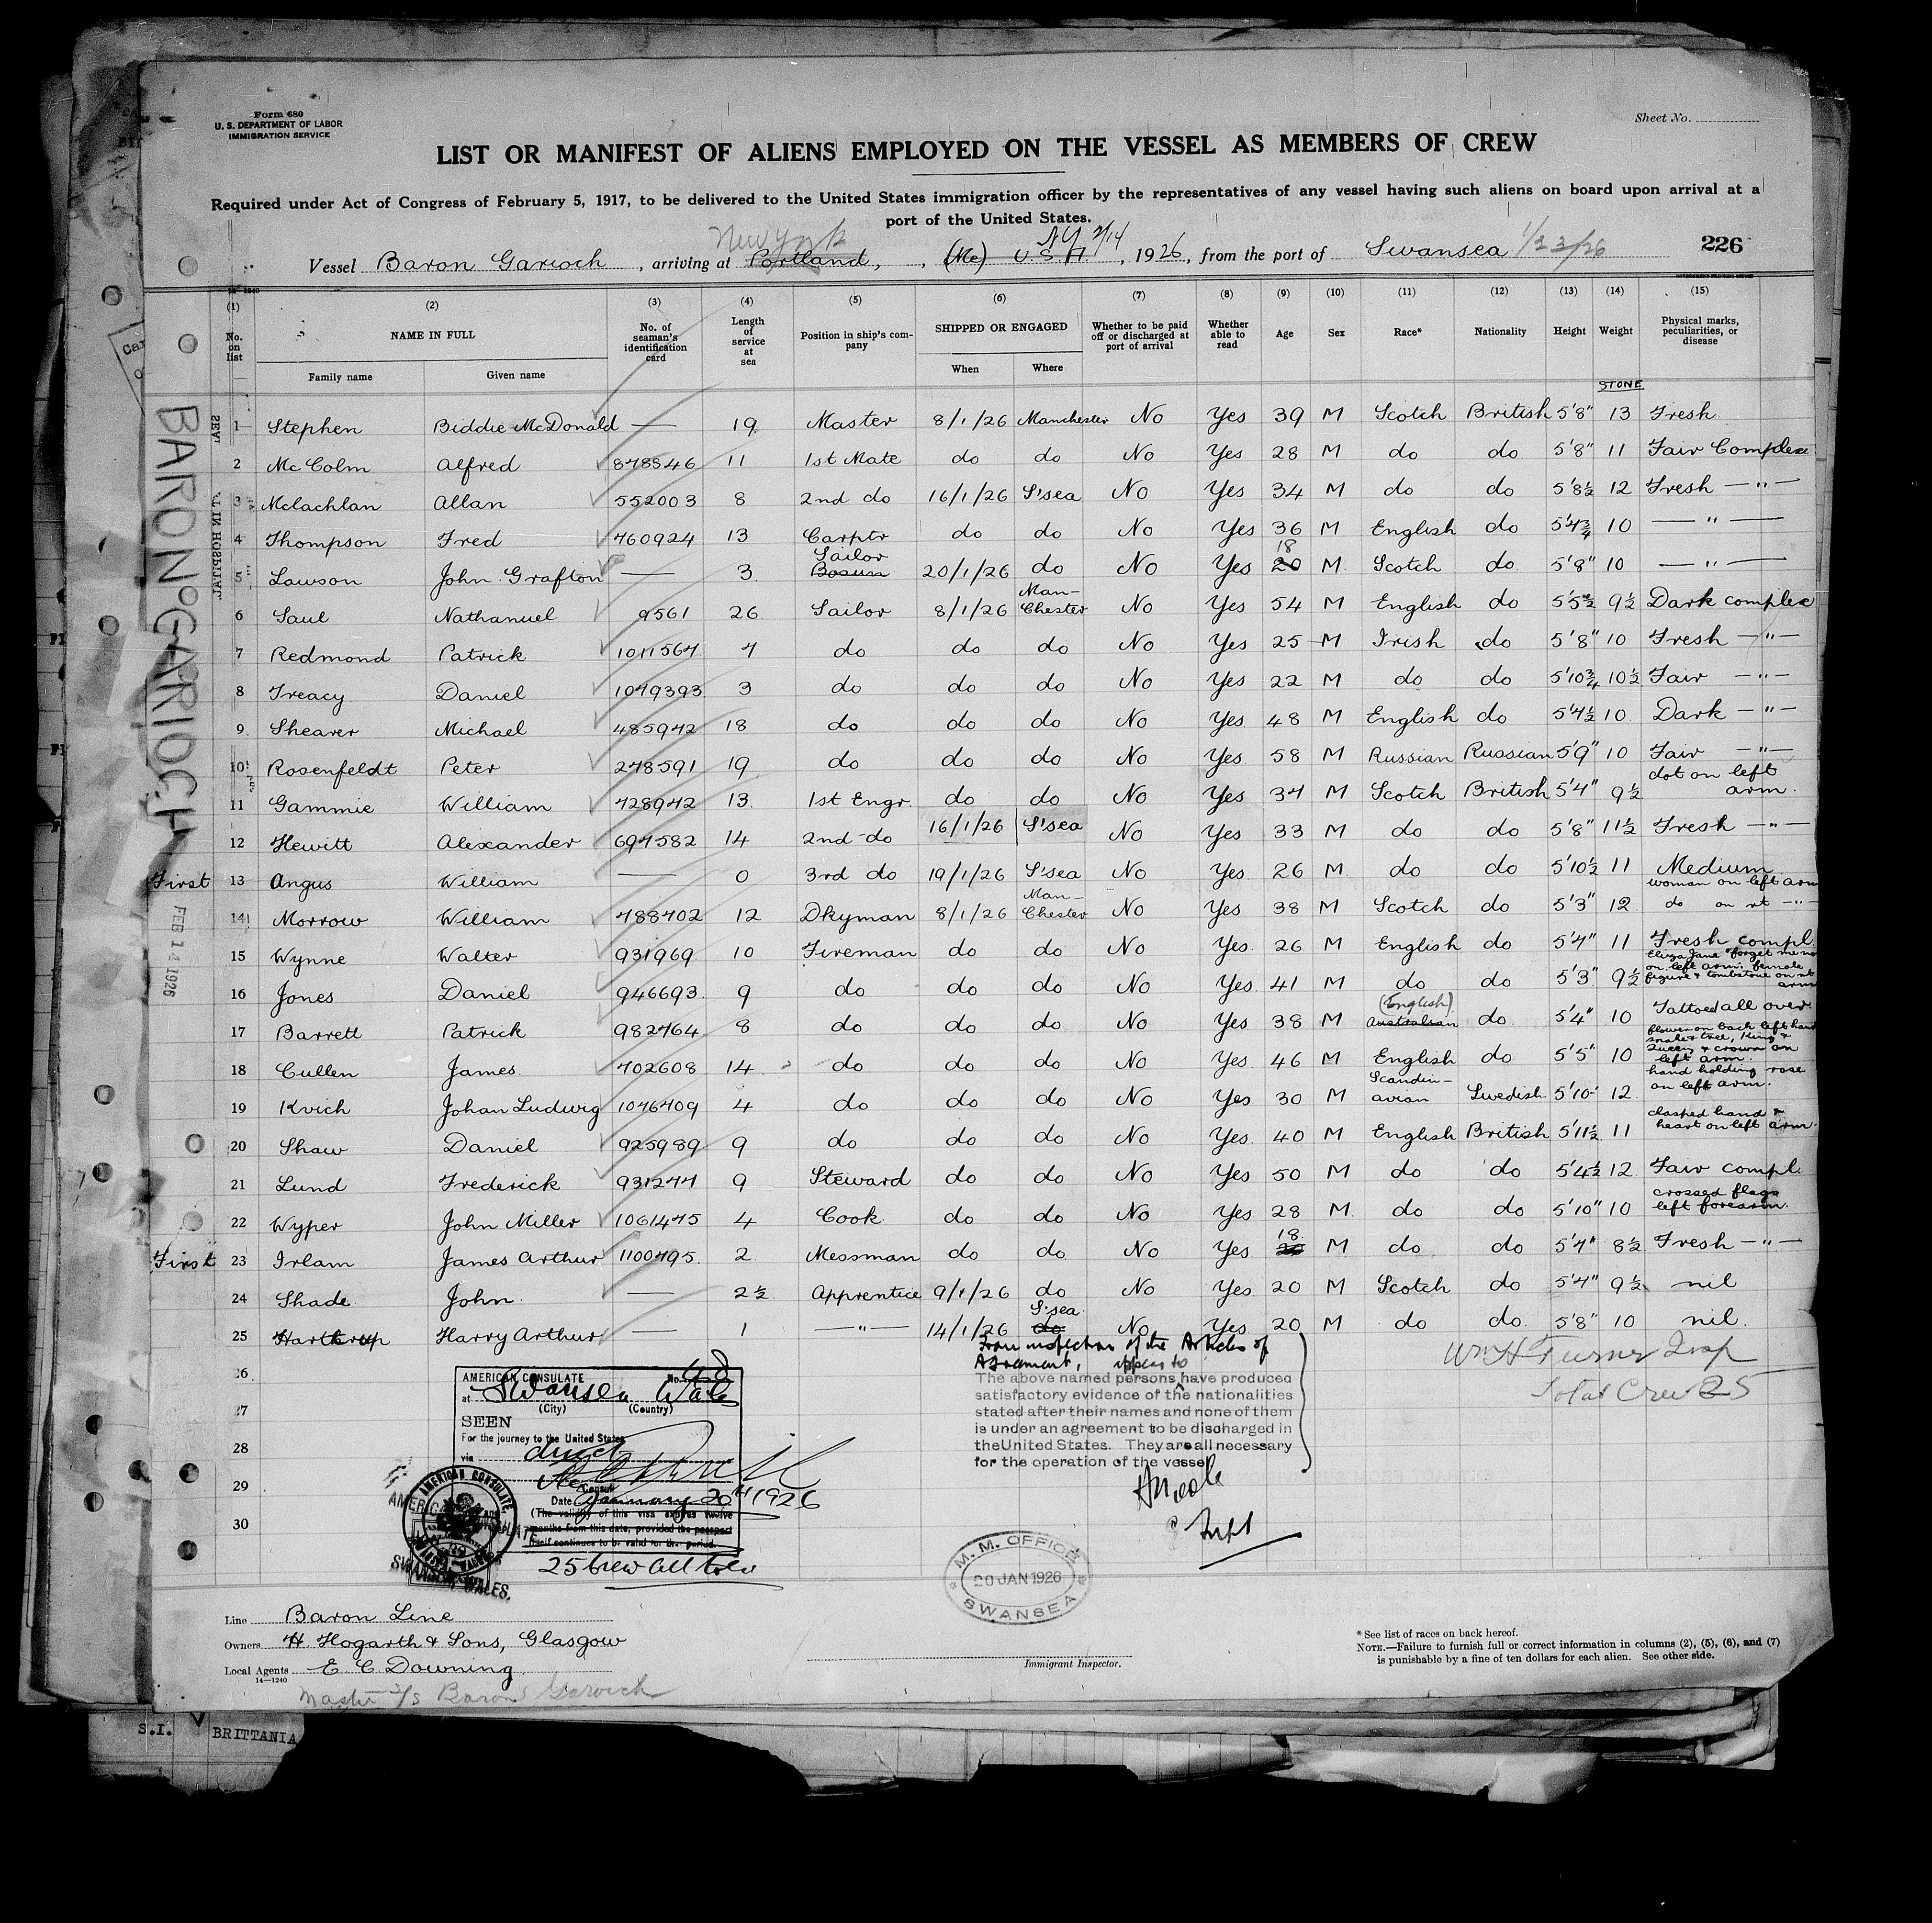 Form 680
U. S. DEPARTMENT OF LABOR
IMMIGRATION SERVICE
Sheet No.
LIST OR MANIFEST OF ALIENS EMPLOYED ON THE VESSEL AS MEMBERS OF CREW
Required under Act of Congress of February 5, 1917, to be delivered to the United States immigration officer by the representatives of any vessel having such aliens on board upon arrival at a
port of the United States.
New York NY 2/14
Vessel Baron Garioch, arriving at Portland, (Me) U S A, 1926, from the port of Swansea 1/23/26 226
(1) (2) (3) (4) (5) (6) (7) (8) (9) (10) (11) (12) (13) (14) (15)
No. on list NAME IN FULL Family name Given name No. of seaman's identification card Length of service at sea Position in ship's company SHIPPED OR ENGAGED When Where Whether to be paid off or discharged at port of arrival Whether able to read Age Sex Race* Nationality Height Weight Physical marks, peculiarities, or disease
STONE
1 Stephen Biddie McDonald — 19 Master 8/1/26 Manchester No Yes 39 M Scotch British 5'8" 13 Fresh
2 McColm Alfred 878546 11 1st Mate do do No Yes 28 M do do 5'8" 11 Fair Complex
3 Mclachlan Allan 552003 8 2nd do 16/1/26 S'sea No Yes 34 M do do 5'8½ 12 Fresh — " —
4 Thompson Fred 760924 13 Carptr do do No Yes 36 M English do 5'4¾ 10 — " —
5 Lawson John Grafton — 3 Sailor Bosun 20/1/26 do No Yes 18 20 M Scotch do 5'8" 10 — " —
6 Saul Nathanuel 9561 26 Sailor 8/1/26 Man-Chester No Yes 54 M English do 5'5½ 9½ Dark complex
7 Redmond Patrick 1011567 7 do do do No Yes 25 M Irish do 5'8" 10 Fresh — " —
8 Treacy Daniel 1079393 3 do do do No Yes 22 M do do 5'10¾ 10½ Fair — " —
9 Shearer Michael 485942 18 do do do No Yes 48 M English do 5'4½ 10 Dark — " —
10 Rosenfeldt Peter 278591 19 do do do No Yes 58 M Russian Russian 5'9" 10 Fair — " —
11 Gammie William 728942 13 1st Engr. do do No Yes 37 M Scotch British 5'4" 9½ dot on left arm.
12 Hewitt Alexander 697582 14 2nd do 16/1/26 S'sea No Yes 33 M do do 5'8" 11½ Fresh — " —
First 13 Angus William — 0 3rd do 19/1/26 S'sea No Yes 26 M do do 5'10½ 11 Medium
14 Morrow William 788402 12 Dkyman 8/1/26 Man-Chester No Yes 38 M Scotch do 5'3" 12 woman on left arm do on rt — " —
15 Wynne Walter 931969 10 Fireman do do No Yes 26 M English do 5'4" 11 Fresh compl.
16 Jones Daniel 946693 9 do do do No Yes 41 M do do 5'3" 9½ Eliza Jane forget me no on left arm. female figure & tombstone on rt arm
17 Barrett Patrick 982764 8 do do do No Yes 38 M (English) Australian do 5'4" 10 Tattoed all over
18 Cullen James 702608 14 do do do No Yes 46 M English do 5'5" 10 flower on back left hand snake & tree, King & Queen & crown on left arm.
19 Kvich Johan Ludwig 1046409 4 do do do No Yes 30 M Scandin-avian Swedish 5'10" 12 hand holding rose on left arm.
20 Shaw Daniel 925989 9 do do do No Yes 40 M English British 5'11½ 11 clasped hand & heart on left arm.
21 Lund Frederick 931277 9 Steward do do No Yes 50 M do do 5'4½ 12 Fair compl.
22 Wyper John Miller 1061475 4 Cook do do No Yes 28 M do do 5'10" 10 crossed flags left forearm.
First 23 Irlam James Arthur 1100795 2 Messman do do No Yes 18 20 M do do 5'4" 8½ Fresh — " —
24 Shade John — 2½ Apprentice 9/1/26 do No Yes 20 M Scotch do 5'4" 9½ nil
25 Hartrup Harry Arthur — 1 — " — 14/1/26 S'sea do No Yes 20 M do do 5'8" 10 nil.
BARON GARIOCH
FEB 14 1926
From inspection of the Articles of
Agreement, appears to
The above named persons have produced
satisfactory evidence of the nationalities
stated after their names and none of them
is under an agreement to be discharged in
the United States. They are all necessary
for the operation of the vessel
Supt
Wm H Turner Insp
Total Crew 25
26
27
28
29
30
AMERICAN CONSULATE No. 48
at Swansea Wales
(City) (Country)
SEEN
For the journey to the United States
via direct
Consul
Date January 20th 1926
(The validity of this visa expires twelve
months from this date, provided the passport
itself continues to be valid for that period.
25 Crew all told
AMERICAN CONSULATE
SWANSEA, WALES.
M. M. OFFICE
20 JAN 1926
SWANSEA
Line Baron Line
Owners H. Hogarth & Sons, Glasgow
Local Agents E C Downing
14—1240
Master S/S Baron Garioch
Immigrant Inspector.
* See list of races on back hereof.
NOTE.—Failure to furnish full or correct information in columns (2), (5), (6), and (7)
is punishable by a fine of ten dollars for each alien. See other side.
S.I. BRITTANIA